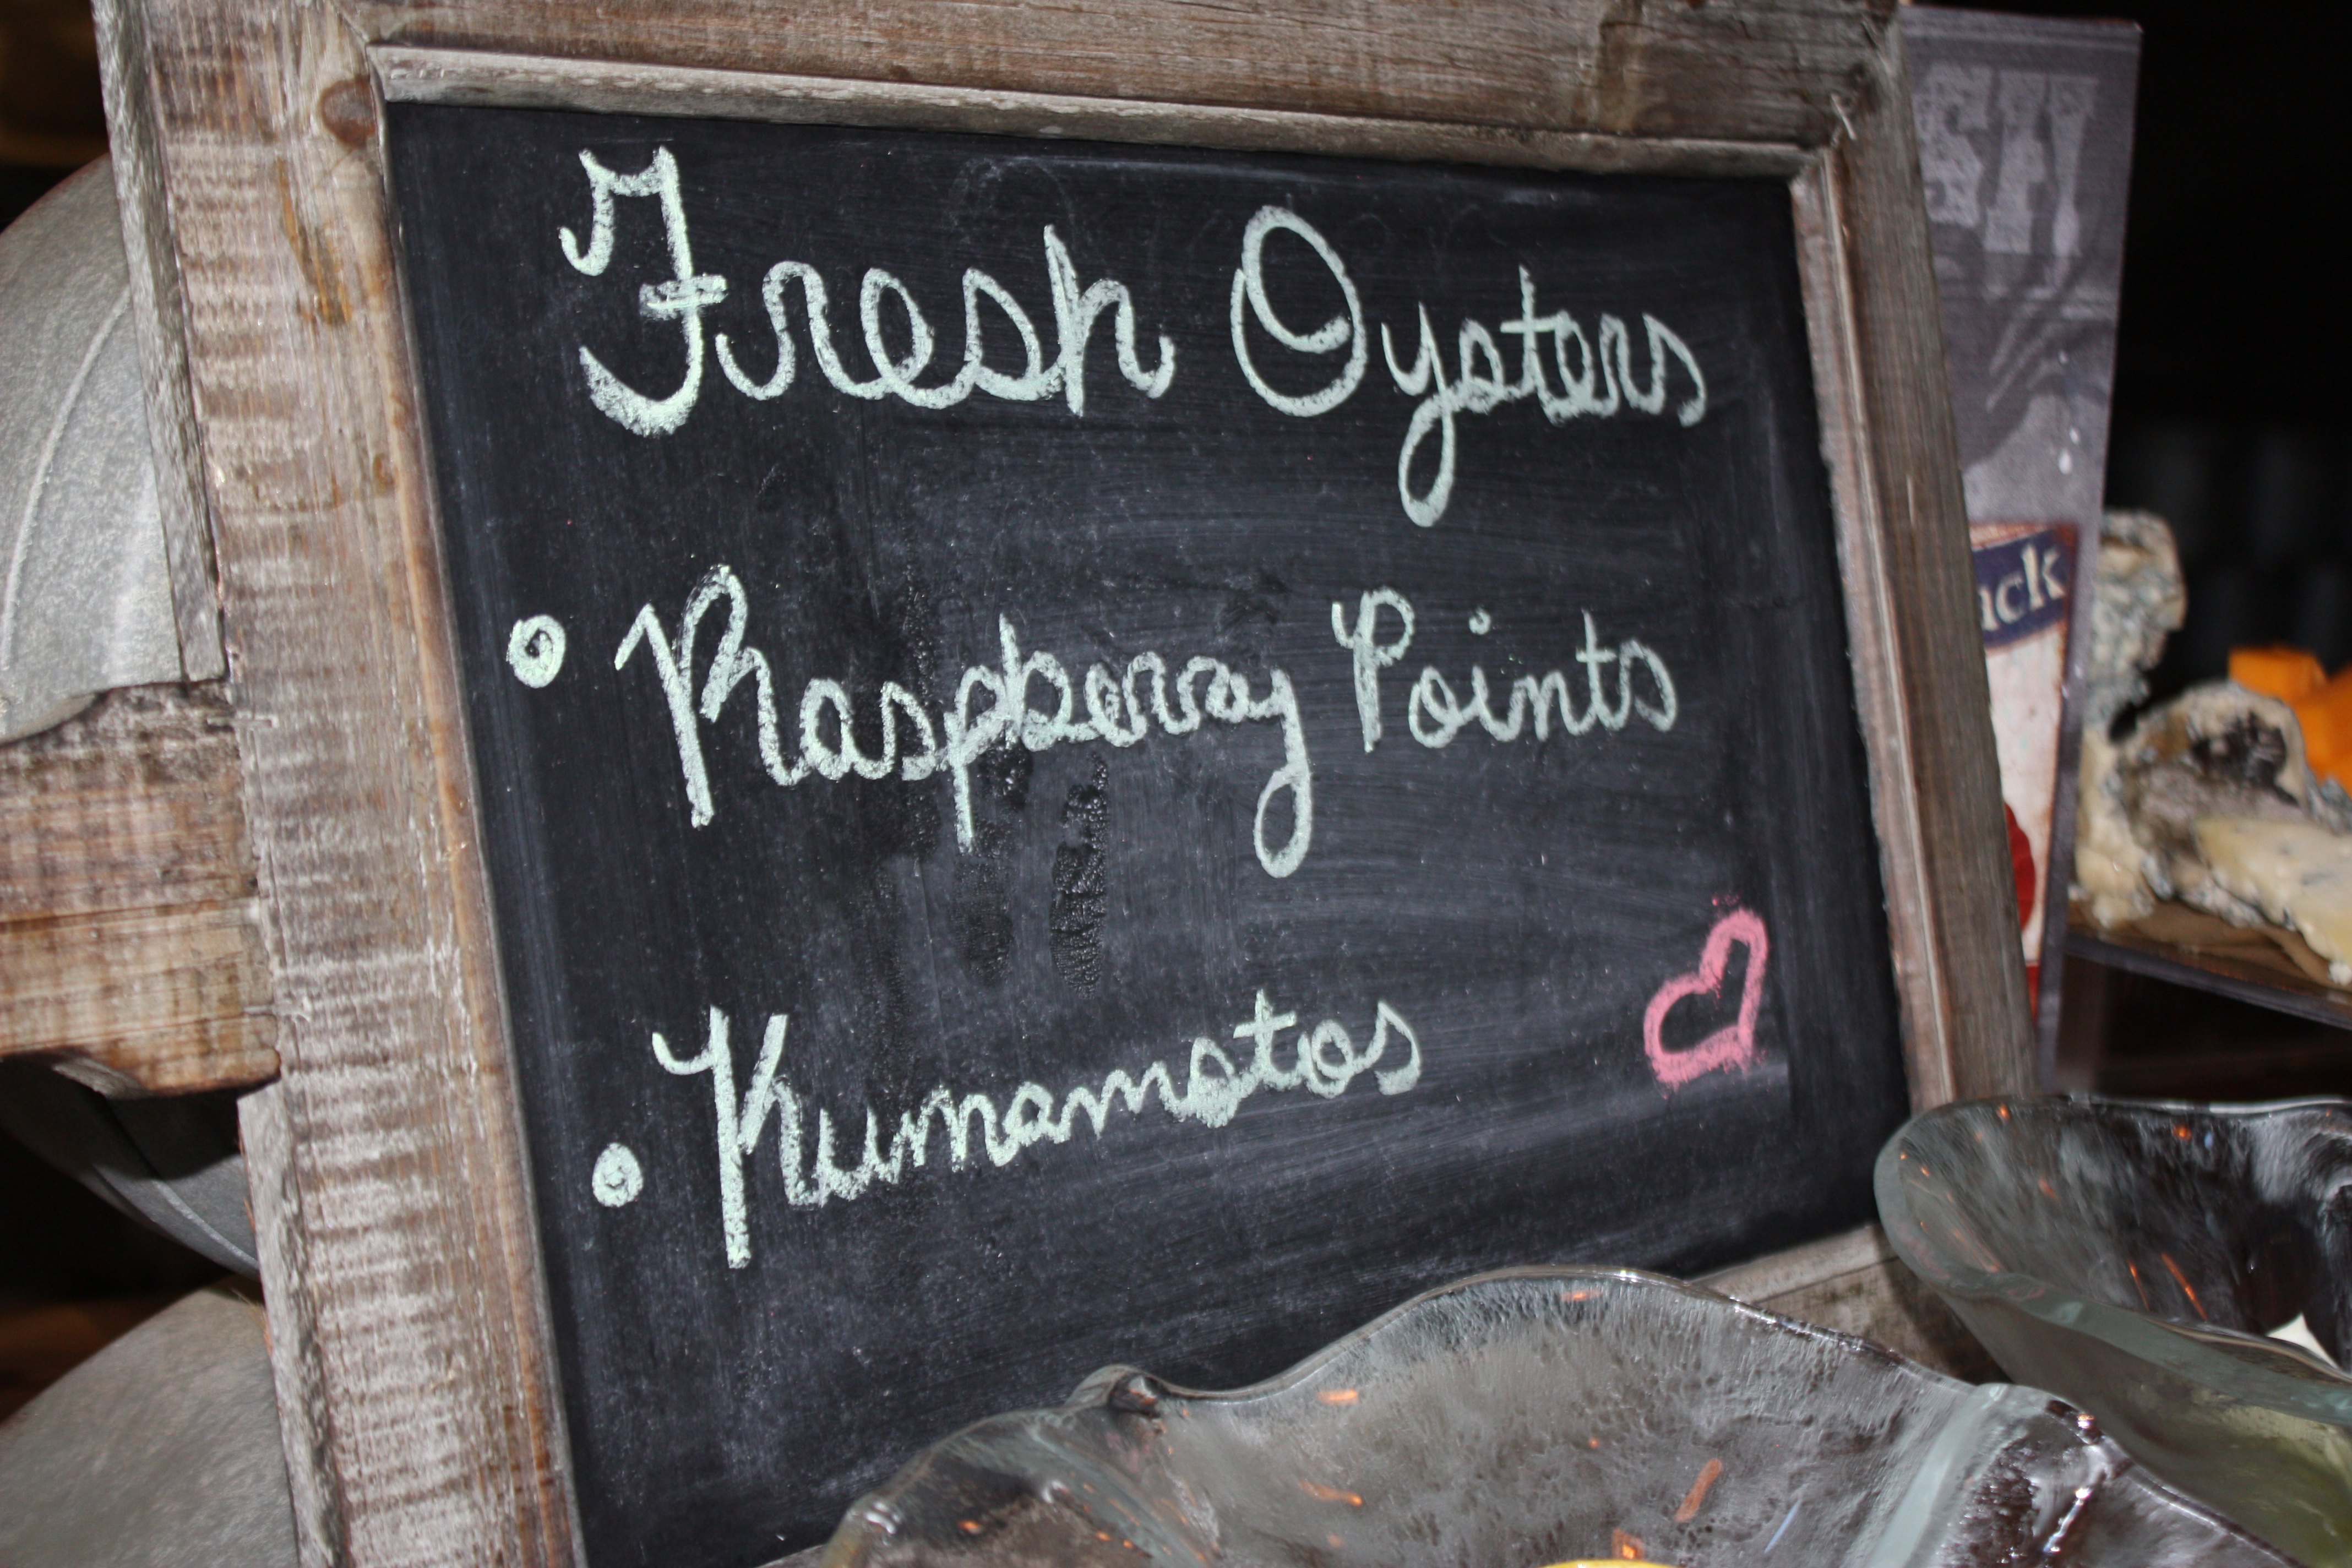 Fresh Oysters
• Raspberry Points
• Kumamotos